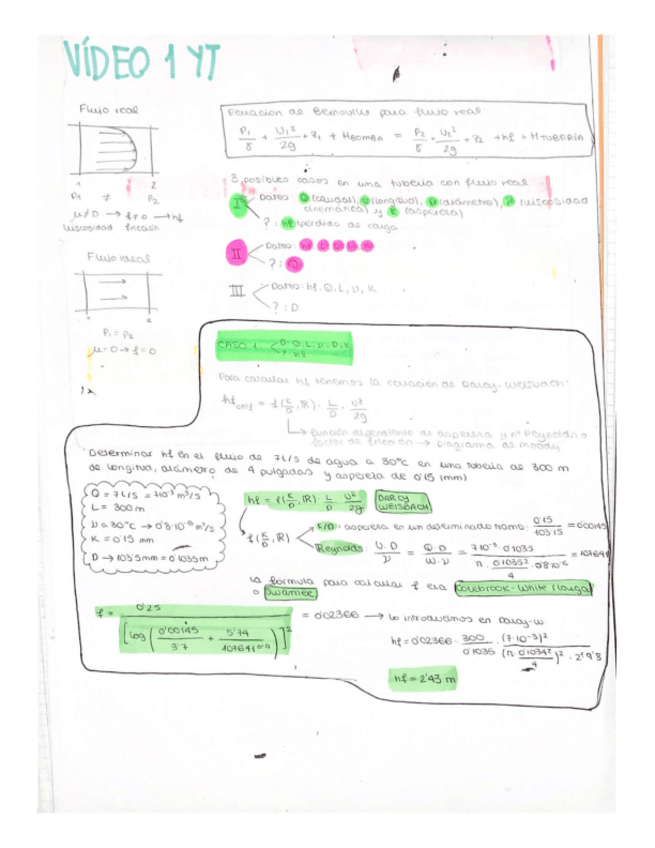 VÍDEO 1 YT
Flujo real
Ecuación de Bernoulli para flujo real:
P1/γ + U1²/2g + Z1 + HBOMBA = P2/γ + U2²/2g + Z2 + hf + HTUBERÍA
1 2
P1 ≠ P2
μ≠0 → f≠0 → hf
viscosidad fricción
3 posibles casos en una tubería con flujo real
I Datos: Q (caudal), L (longitud), D (diámetro), ν (viscosidad
cinemática) y K (aspereza)
? : hf (pérdidas de carga)
II Datos: hf L D ν K
? : Q
III Datos: hf, Q, L, ν, K
? : D
Flujo ideal
1 2
P1 = P2
μ=0 → f=0
CASO 1 D: Q, L, ν, D, K
? : hf
Para calcular hf tenemos la ecuación de Darcy-Weisbach:
hf = f(ε/D, R) · L/D · U²/2g
función dependiente de aspereza y nº Reynolds o
factor de fricción → Diagrama de Moody
Determinar hf en el flujo de 7L/S de agua a 30ºC en una tubería de 300 m
de longitud, diámetro de 4 pulgadas y aspereza de 0'15 (mm)
Q = 7L/S = 7·10⁻³ m³/S
L = 300m
ν a 30ºC → 0'8·10⁻⁶ m²/s
K = 0'15 mm
D → 103'5mm = 0'1035m
hf = f(ε/D, R) L/D · U²/2g DARCY WEISBACH
f(ε/D, R)
ε/D = aspereza en un determinado tramo: 0'15/103'5 = 0'00145
Reynolds: U·D/ν = Q·D/W·ν = 7·10⁻³·0'1035 / (π·0'1035²/4 · 0'8·10⁻⁶) = 107641
La fórmula para calcular f era Colebrook-White (larga)
o Swamee
f = 0'25 / [log(0'00145/3'7 + 5'74/107641^0'9)]² = 0'02366 → lo introducimos en Darcy-W:
hf = 0'02366 · 300/0'1035 · (7·10⁻³)² / ((π·0'1034²/4)² · 2·9'8)
hf = 2'43 m